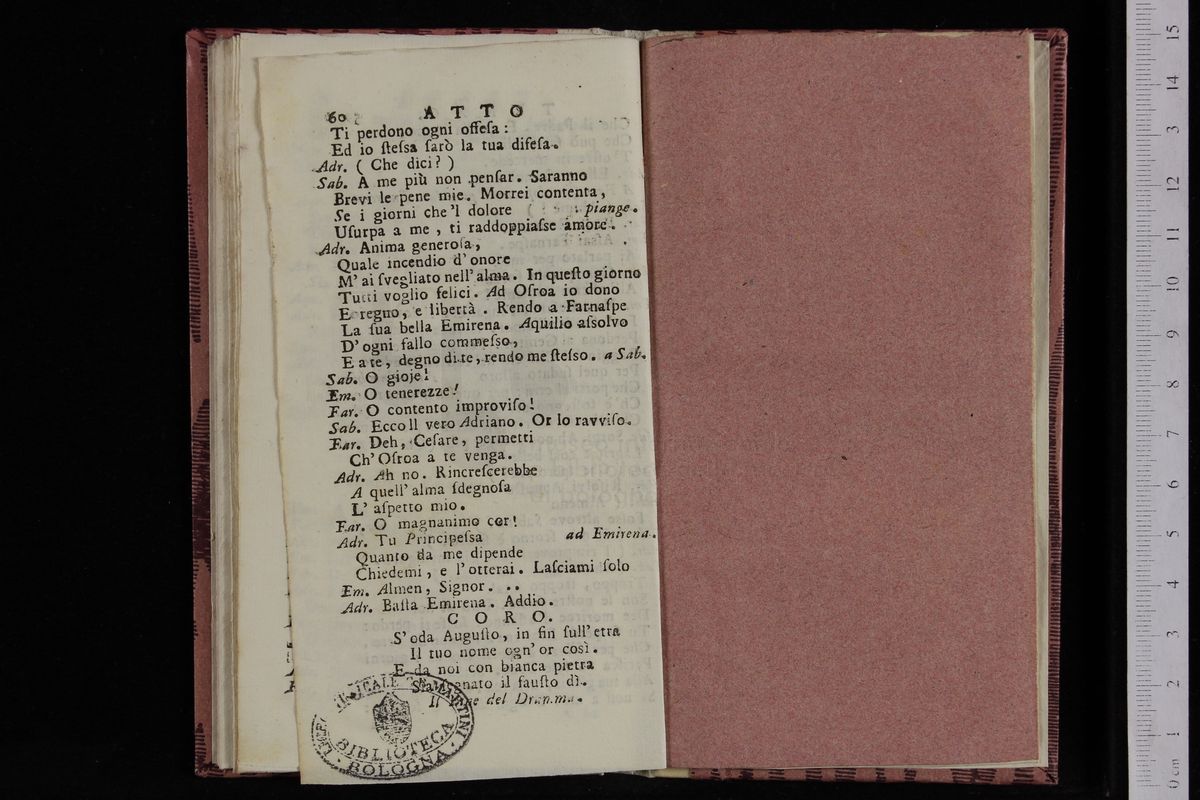 60 ATTO
Ti perdono ogni offeſa:
Ed io ſteſsa ſarò la tua difeſa.
Adr. (Che dici?)
Sab. A me più non penſar. Saranno
Brevi le pene mie. Morrei contenta,
Se i giorni che'l dolore piange.
Uſurpa a me, ti raddoppiaſse amore.
Adr. Anima generoſa,
Quale incendio d'onore
M'ai ſvegliato nell'alma. In queſto giorno
Tutti voglio felici. Ad Oſroa io dono
E regno, e libertà. Rendo a Farnaſpe
La ſua bella Emirena. Aquilio aſsolvo
D'ogni fallo commeſso,
E a te, degno di te, rendo me ſteſso. a Sab.
Sab. O gioje!
Em. O tenerezze!
Far. O contento improviſo!
Sab. Ecco Il vero Adriano. Or lo ravviſo.
Far. Deh, Ceſare, permetti
Ch'Oſroa a te venga.
Adr. Ah no. Rincreſcerebbe
A quell'alma ſdegnoſa
L'aſpetto mio.
Far. O magnanimo cor!
Adr. Tu Principeſsa ad Emirena.
Quanto da me dipende
Chiedemi, e l'otterai. Laſciami ſolo
Em. Almen, Signor...
Adr. Baſta Emirena. Addio.
CORO.
S'oda Auguſto, in fin ſull'etra
Il tuo nome ogn'or così.
E da noi con bianca pietra
il fauſto dì.
Il del Dramma.
MARTINI
BIBLIOTECA
BOLOGNA
15
14
13
12
11
10
9
8
7
6
5
4
3
2
1
0 cm